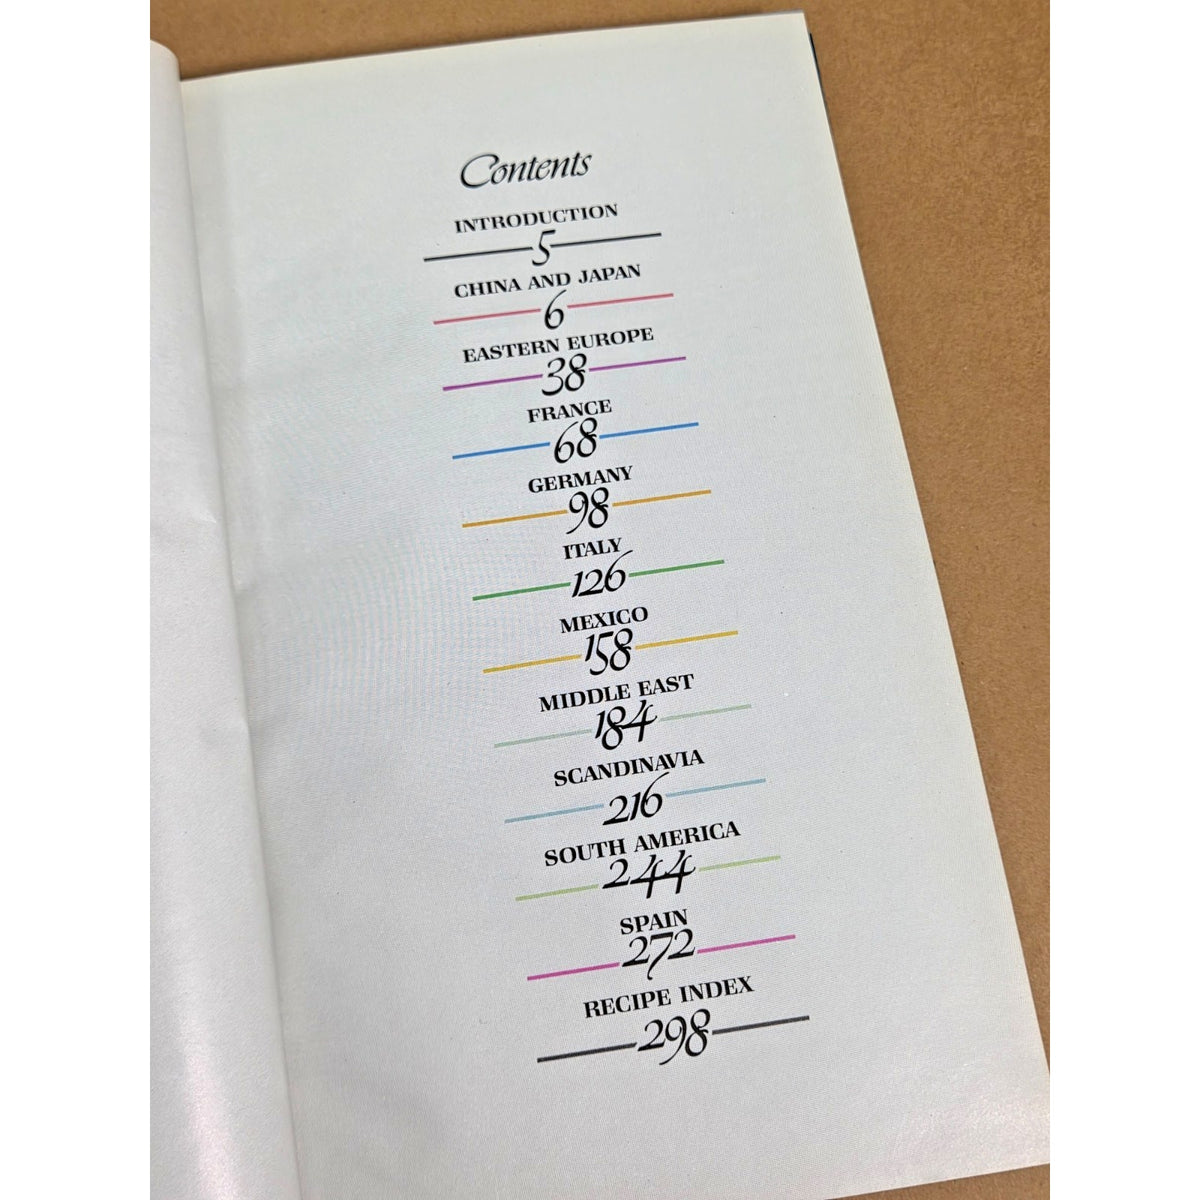 Contents
INTRODUCTION
5
CHINA AND JAPAN
6
EASTERN EUROPE
38
FRANCE
68
GERMANY
98
ITALY
126
MEXICO
158
MIDDLE EAST
184
SCANDINAVIA
216
SOUTH AMERICA
244
SPAIN
272
RECIPE INDEX
298